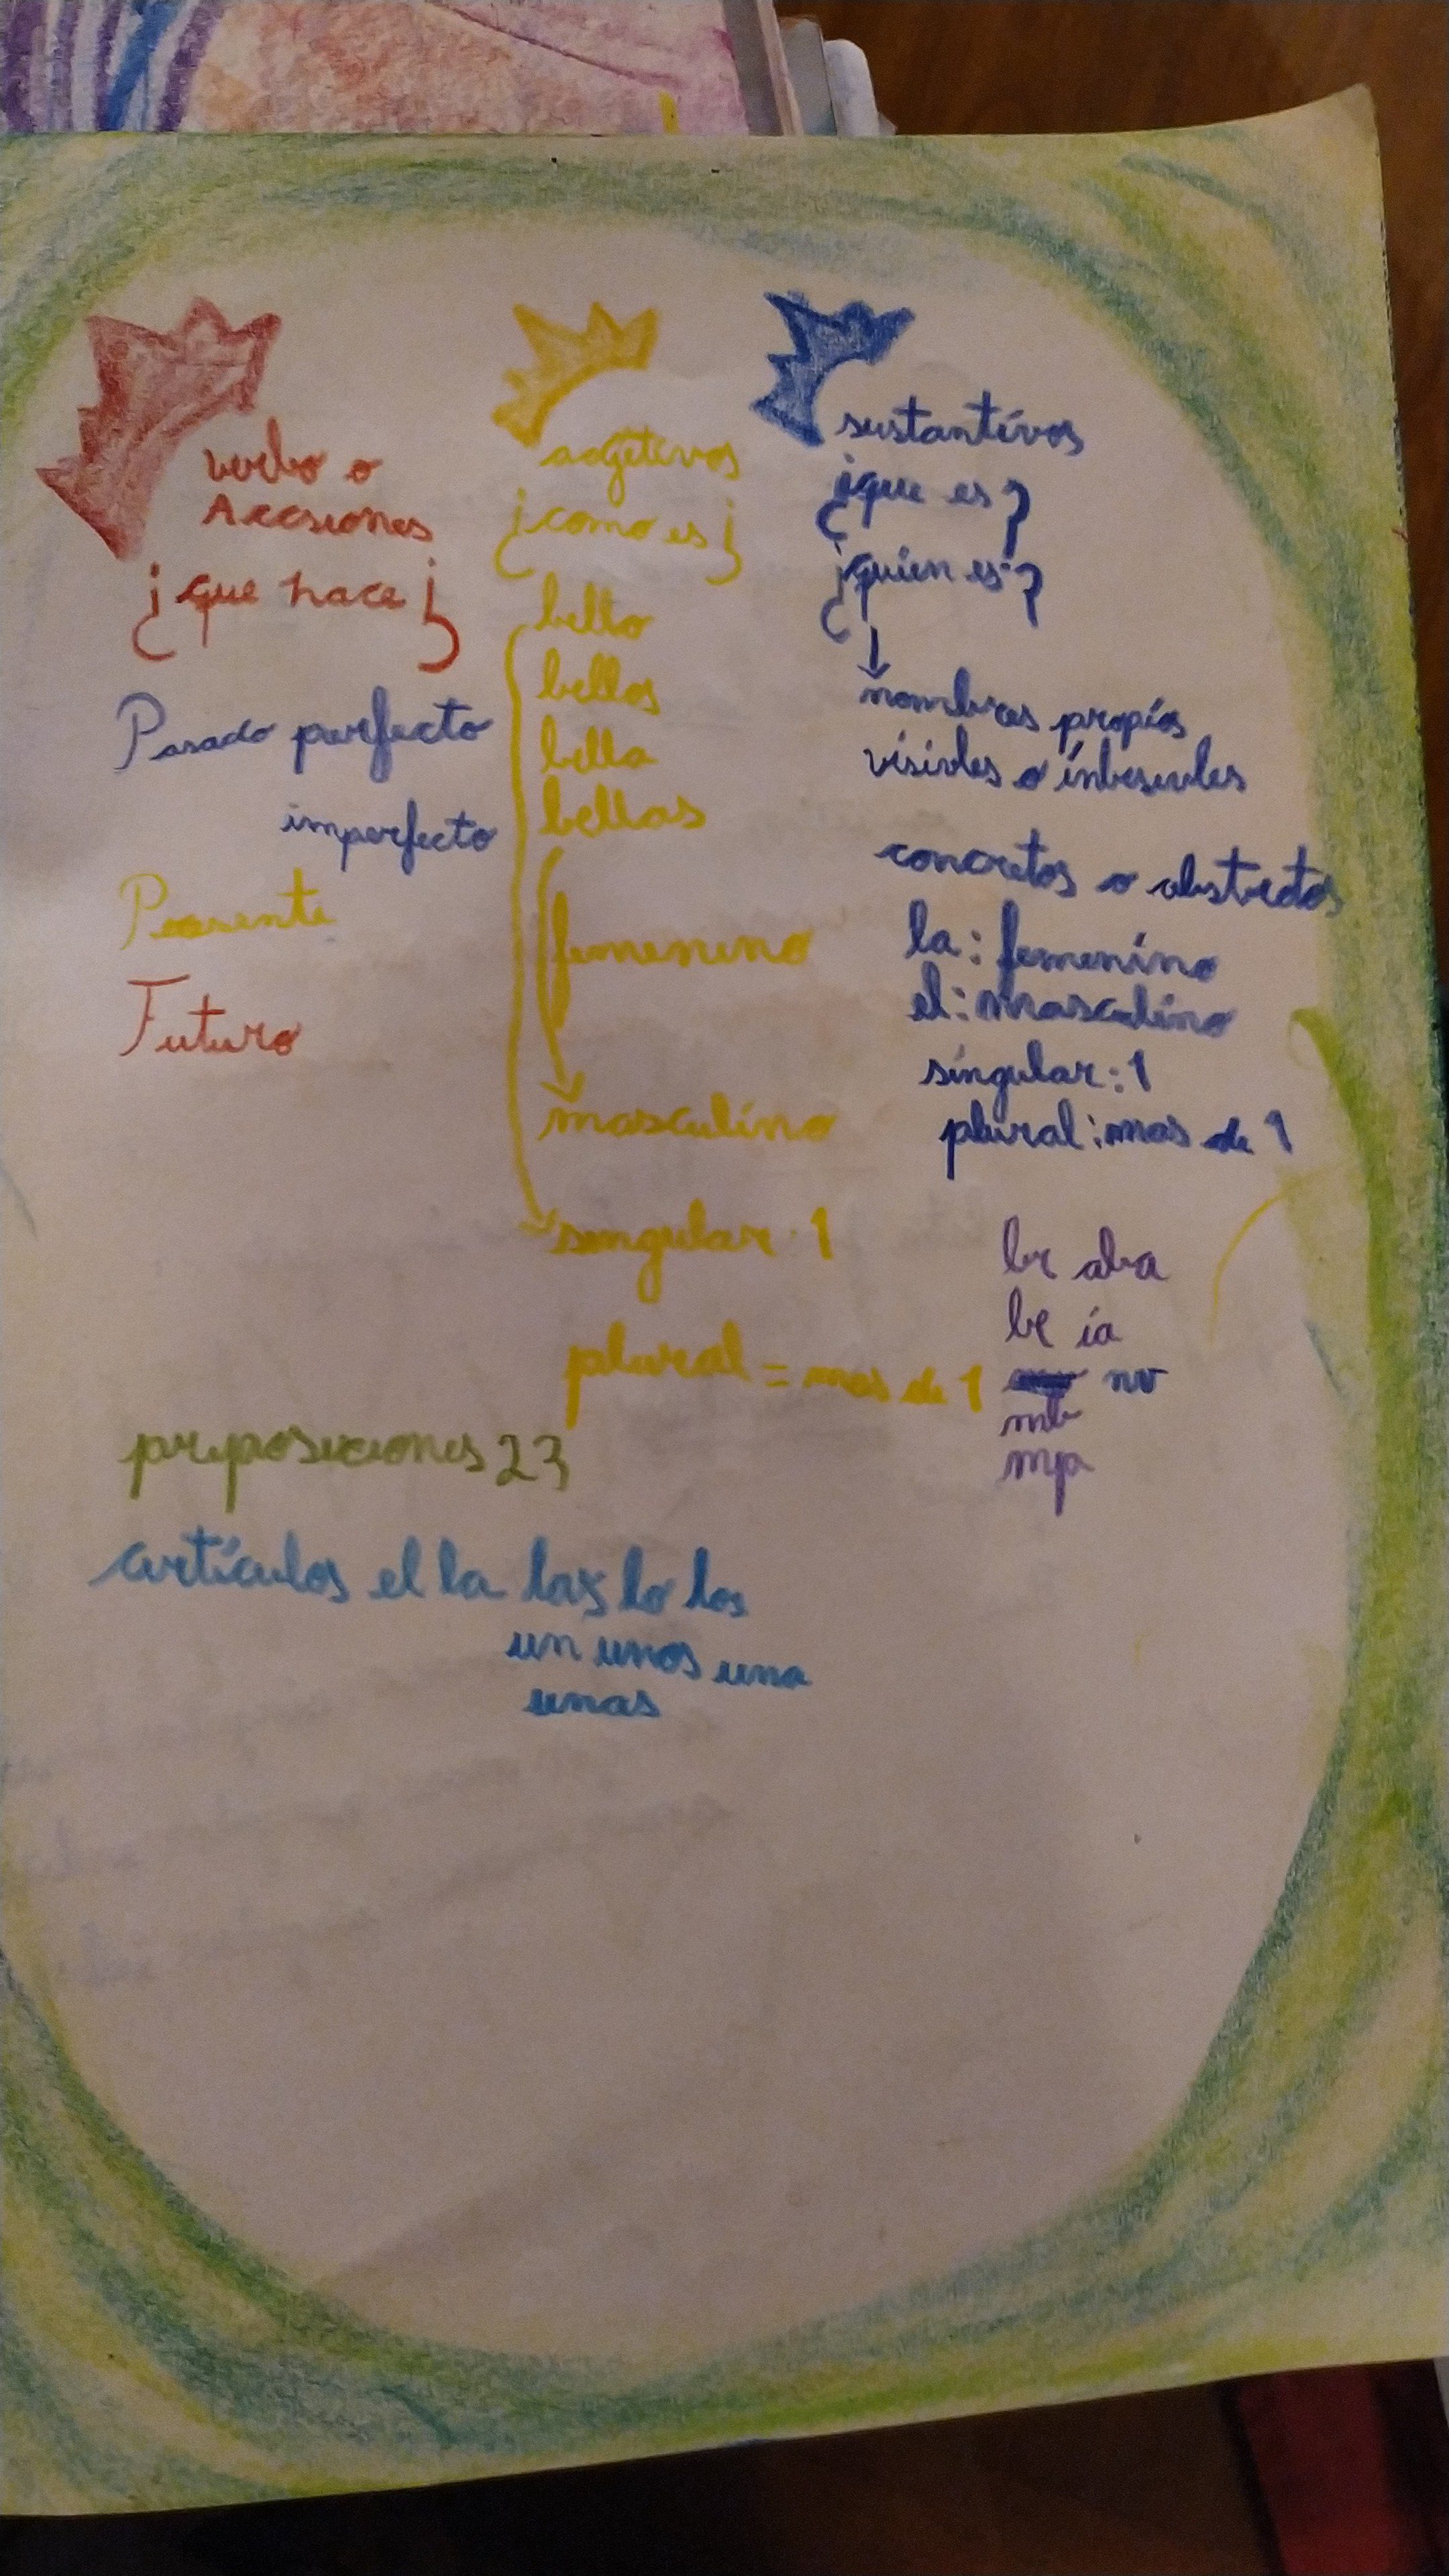 verbo o
Accsiones
¿¡que hace!?
Pasado perfecto
imperfecto
Presente
Futuro
adgetivos
¿¡como es!?
bello
bellos
bella
bellas
femenino
masculino
singular . 1
plural = mas de 1
sustantivos
¿¡que es?
¿¡quien es?
nombres propios
visivles o inbesivles
concretos o abstractos
la: femenino
el: masculino
singular: 1
plural: mas de 1
br aba
be ia
nv
mb
mpa
preposiciones 23
artículos el la las lo los
un unos una
unas